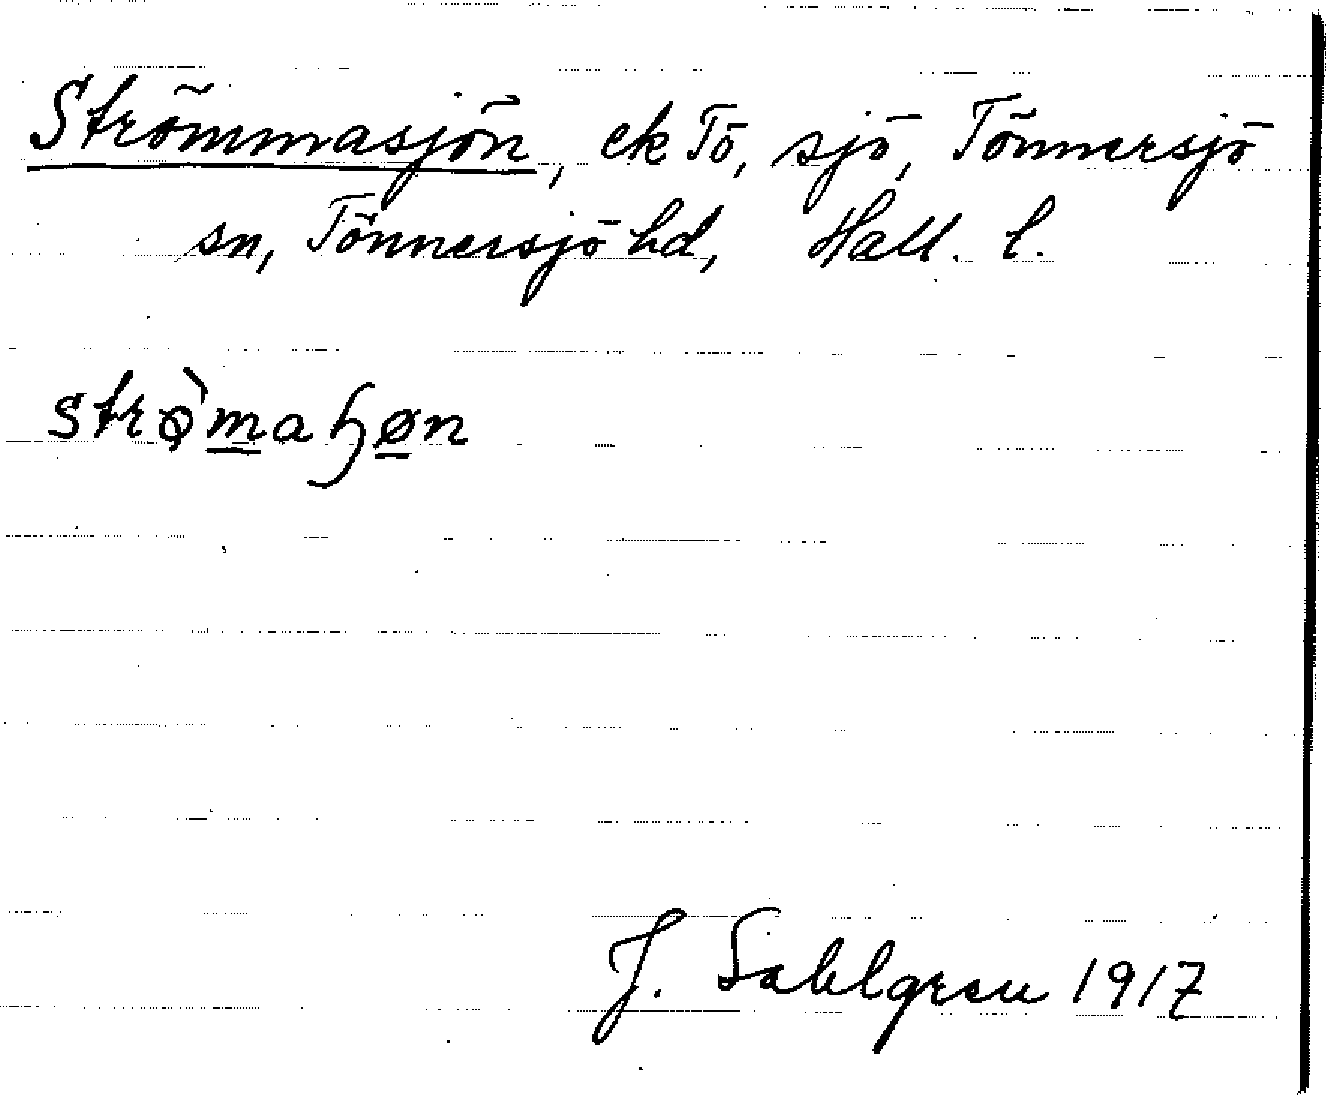 Strömmasjön, ek Tö, sjö, Tönnersjö
sn, Tönnersjö hd, Hall. l.
strǫ̀maɧøn
J. Sahlgren 1917